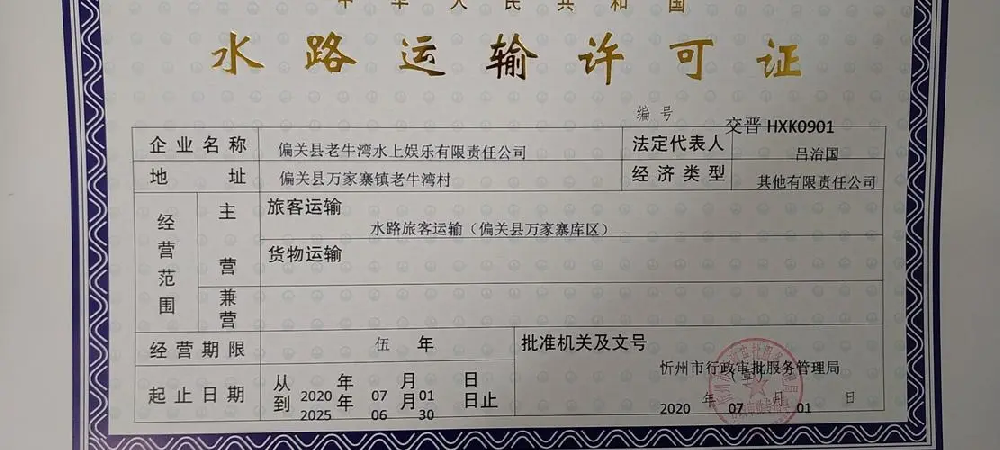 中华人民共和国
水路运输许可证
编号
交晋 HXK0901
企业名称 偏关县老牛湾水上娱乐有限责任公司 法定代表人 吕治国
地址 偏关县万家寨镇老牛湾村 经济类型 其他有限责任公司
经营范围 主营 旅客运输
水路旅客运输（偏关县万家寨库区）
货物运输
兼营
经营期限 伍 年 批准机关及文号
忻州市行政审批服务管理局
（章）
起止日期 从 2020 年 07 月 01 日
到 2025 年 06 月 30 日止
2020 年 07 月 01 日